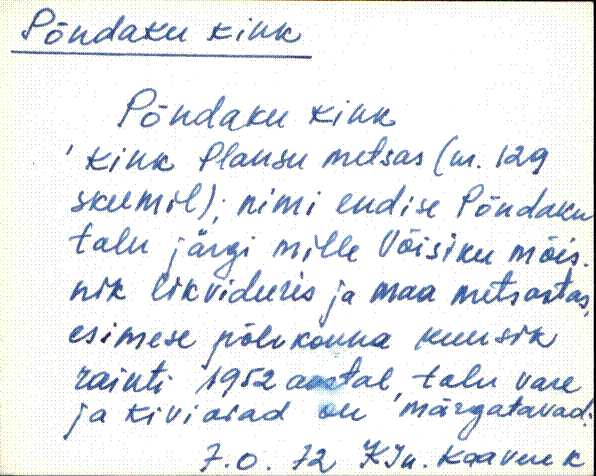 Põndaku kink
Põndaku kink
'kink Plansu metsas (nr. 129
skeemil); nimi endise Põndaku
talu järgi mille Võisiku mõis-
nik likvideeris ja maa metsastas,
esimese põlvkonna kuusik
raiuti 1952 aastal, talu vare
ja kiviaiad on märgatavad.
7.0. 72 KKn. Kaavere k